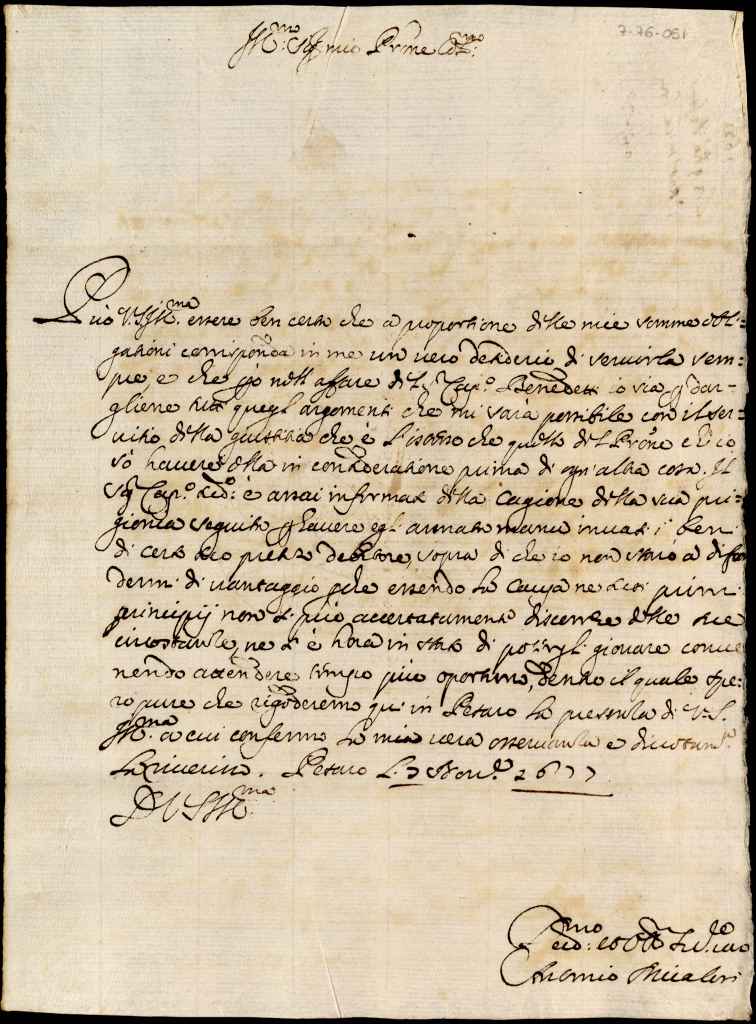 7-76-051
Ill.mo Sig.r mio Pr̃one Col.mo
Può V.S. Ill.ma essere ben certa che à proportione delle mie somme obli=
gationi corrisponda in me un vero desiderio di servirla sem=
pre, e che più nell'affare del S.r Cap.o Benedetti io sia p dar=
gliene tutti quegl'argomenti che mi sarà possibile con il ser=
vitio della giustitia che è l'istesso che quello del Pr̃one che io
sò havere ella in consideratione prima di ogn'altra cosa. Il
S.r Cap.o è assai informato della cagione della sua pri=
gionia seguita p havere egl'armata manu invasi i beni
di certo suo debitore, sopra di che io non starò a
di vantaggio p che essendo la causa ne suoi primi
principij non si può accertatamente discorrere delle sue
circostanze, ne si è hora in stato di potergli giovare conve=
nendo attendere tempo più oportuno, dentro il quale spe=
ro pure che rigoderemo qui in Pesaro la presenza di V.S.
Ill.ma a cui confermo la mia vera osservanza e
la riverisco. Pesaro li 7 Nov.e 1677
D V S Ill.ma
Dev.mo et Obl.
Antonio